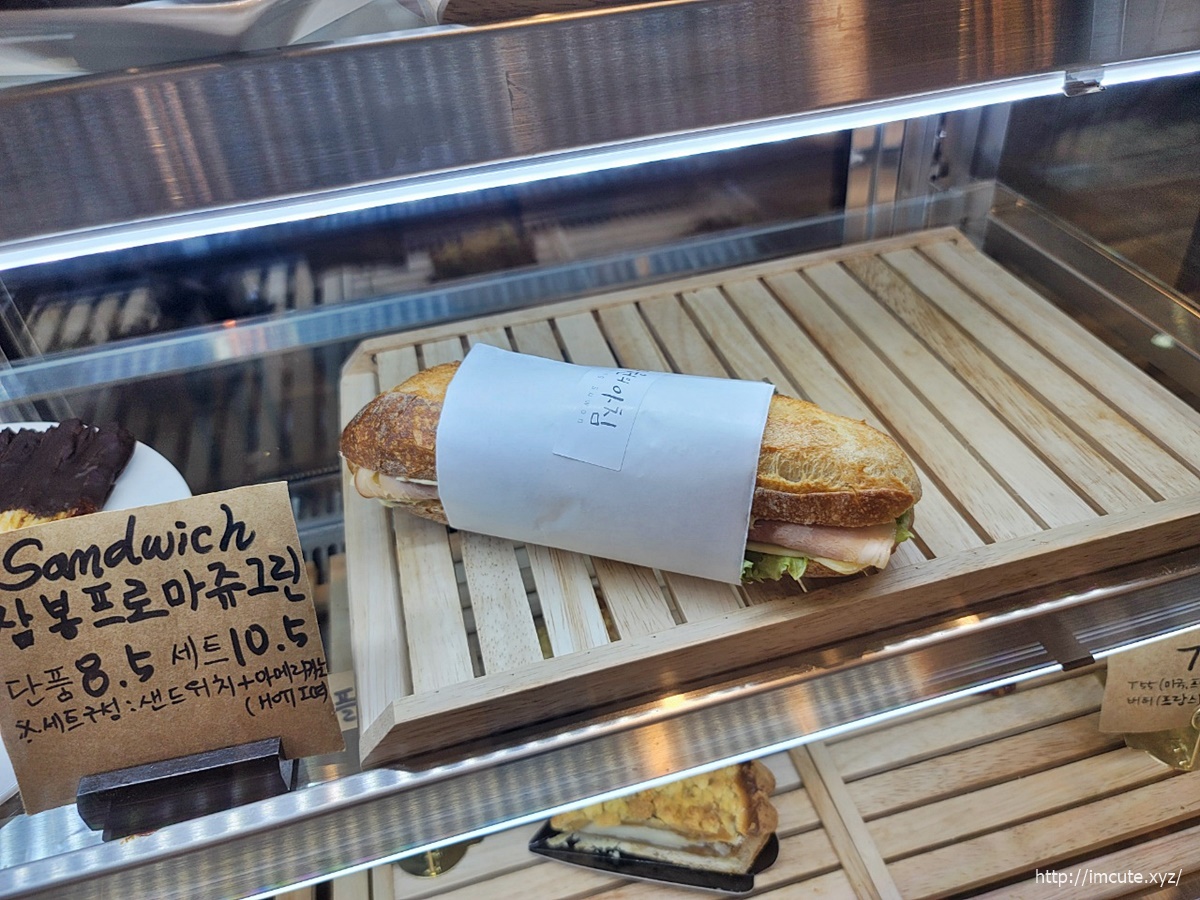 Sandwich
잠봉프로마쥬그린
단품 8.5 세트 10.5
※세트구성:샌드위치+아메리카노
(HOT/ICE)
아침
suwon
T55(마쥬,프
버터(프랑스
플
http://imcute.xyz/